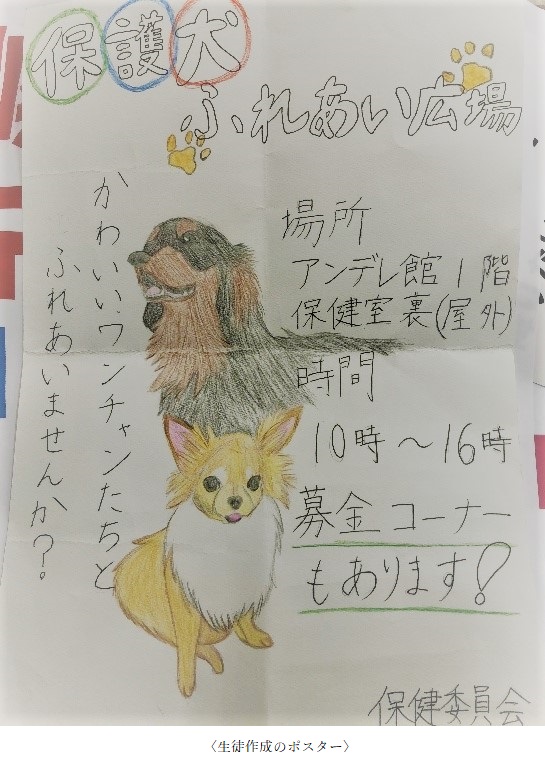 保護犬
ふれあい広場
かわいいワンチャンたちと
ふれあいませんか?
場所
アンデレ館1階
保健室裏(屋外)
時間
10時~16時
募金コーナー
もあります!
保健委員会
〈生徒作成のポスター〉